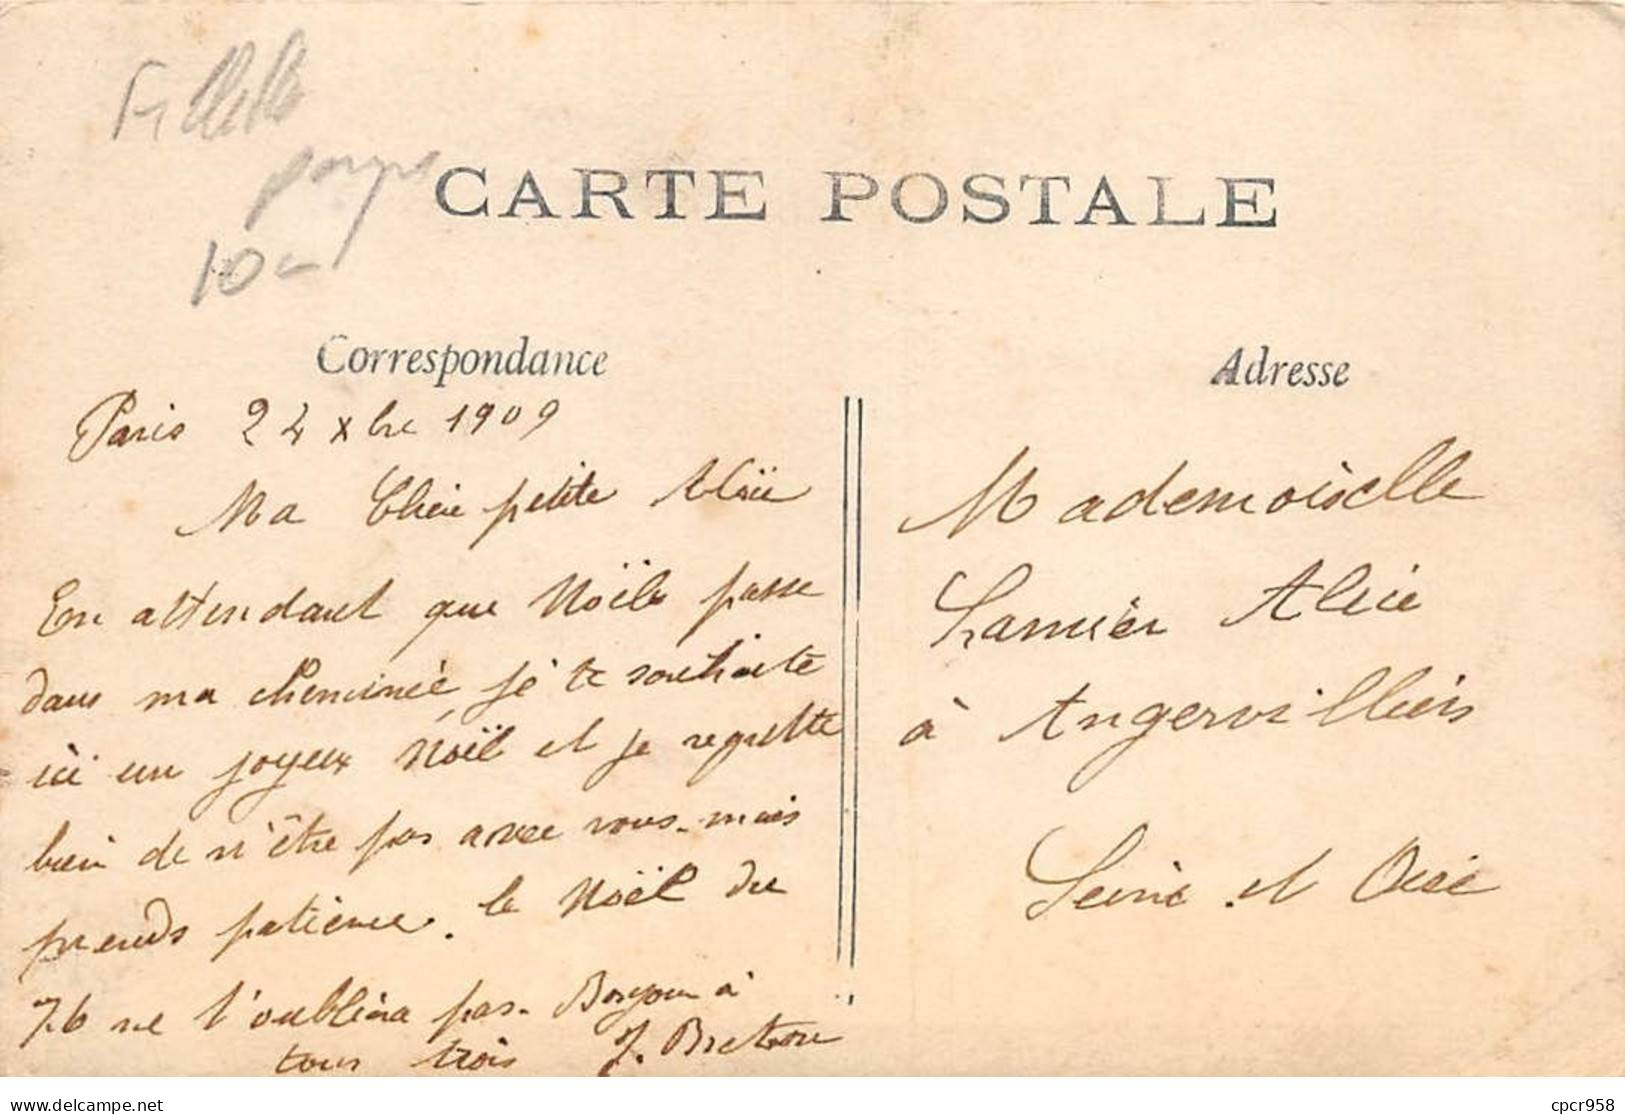 Fillette
10c
CARTE POSTALE
Correspondance
Adresse
Paris 24 xbre 1909
Ma Chère petite Alice
En attendant que Noële passe
dans ma cheminée je te souhaite
ici un joyeux Noël et je regrette
bien de n'être pas avec vous. mais
prends patience. le Noël du
76 ne t'oubliera pas. Bonjour à
tous trois J. Breton
Mademoiselle
Alice
à Angervilliers
Seine et Oise
delcampe.net
cpcr958